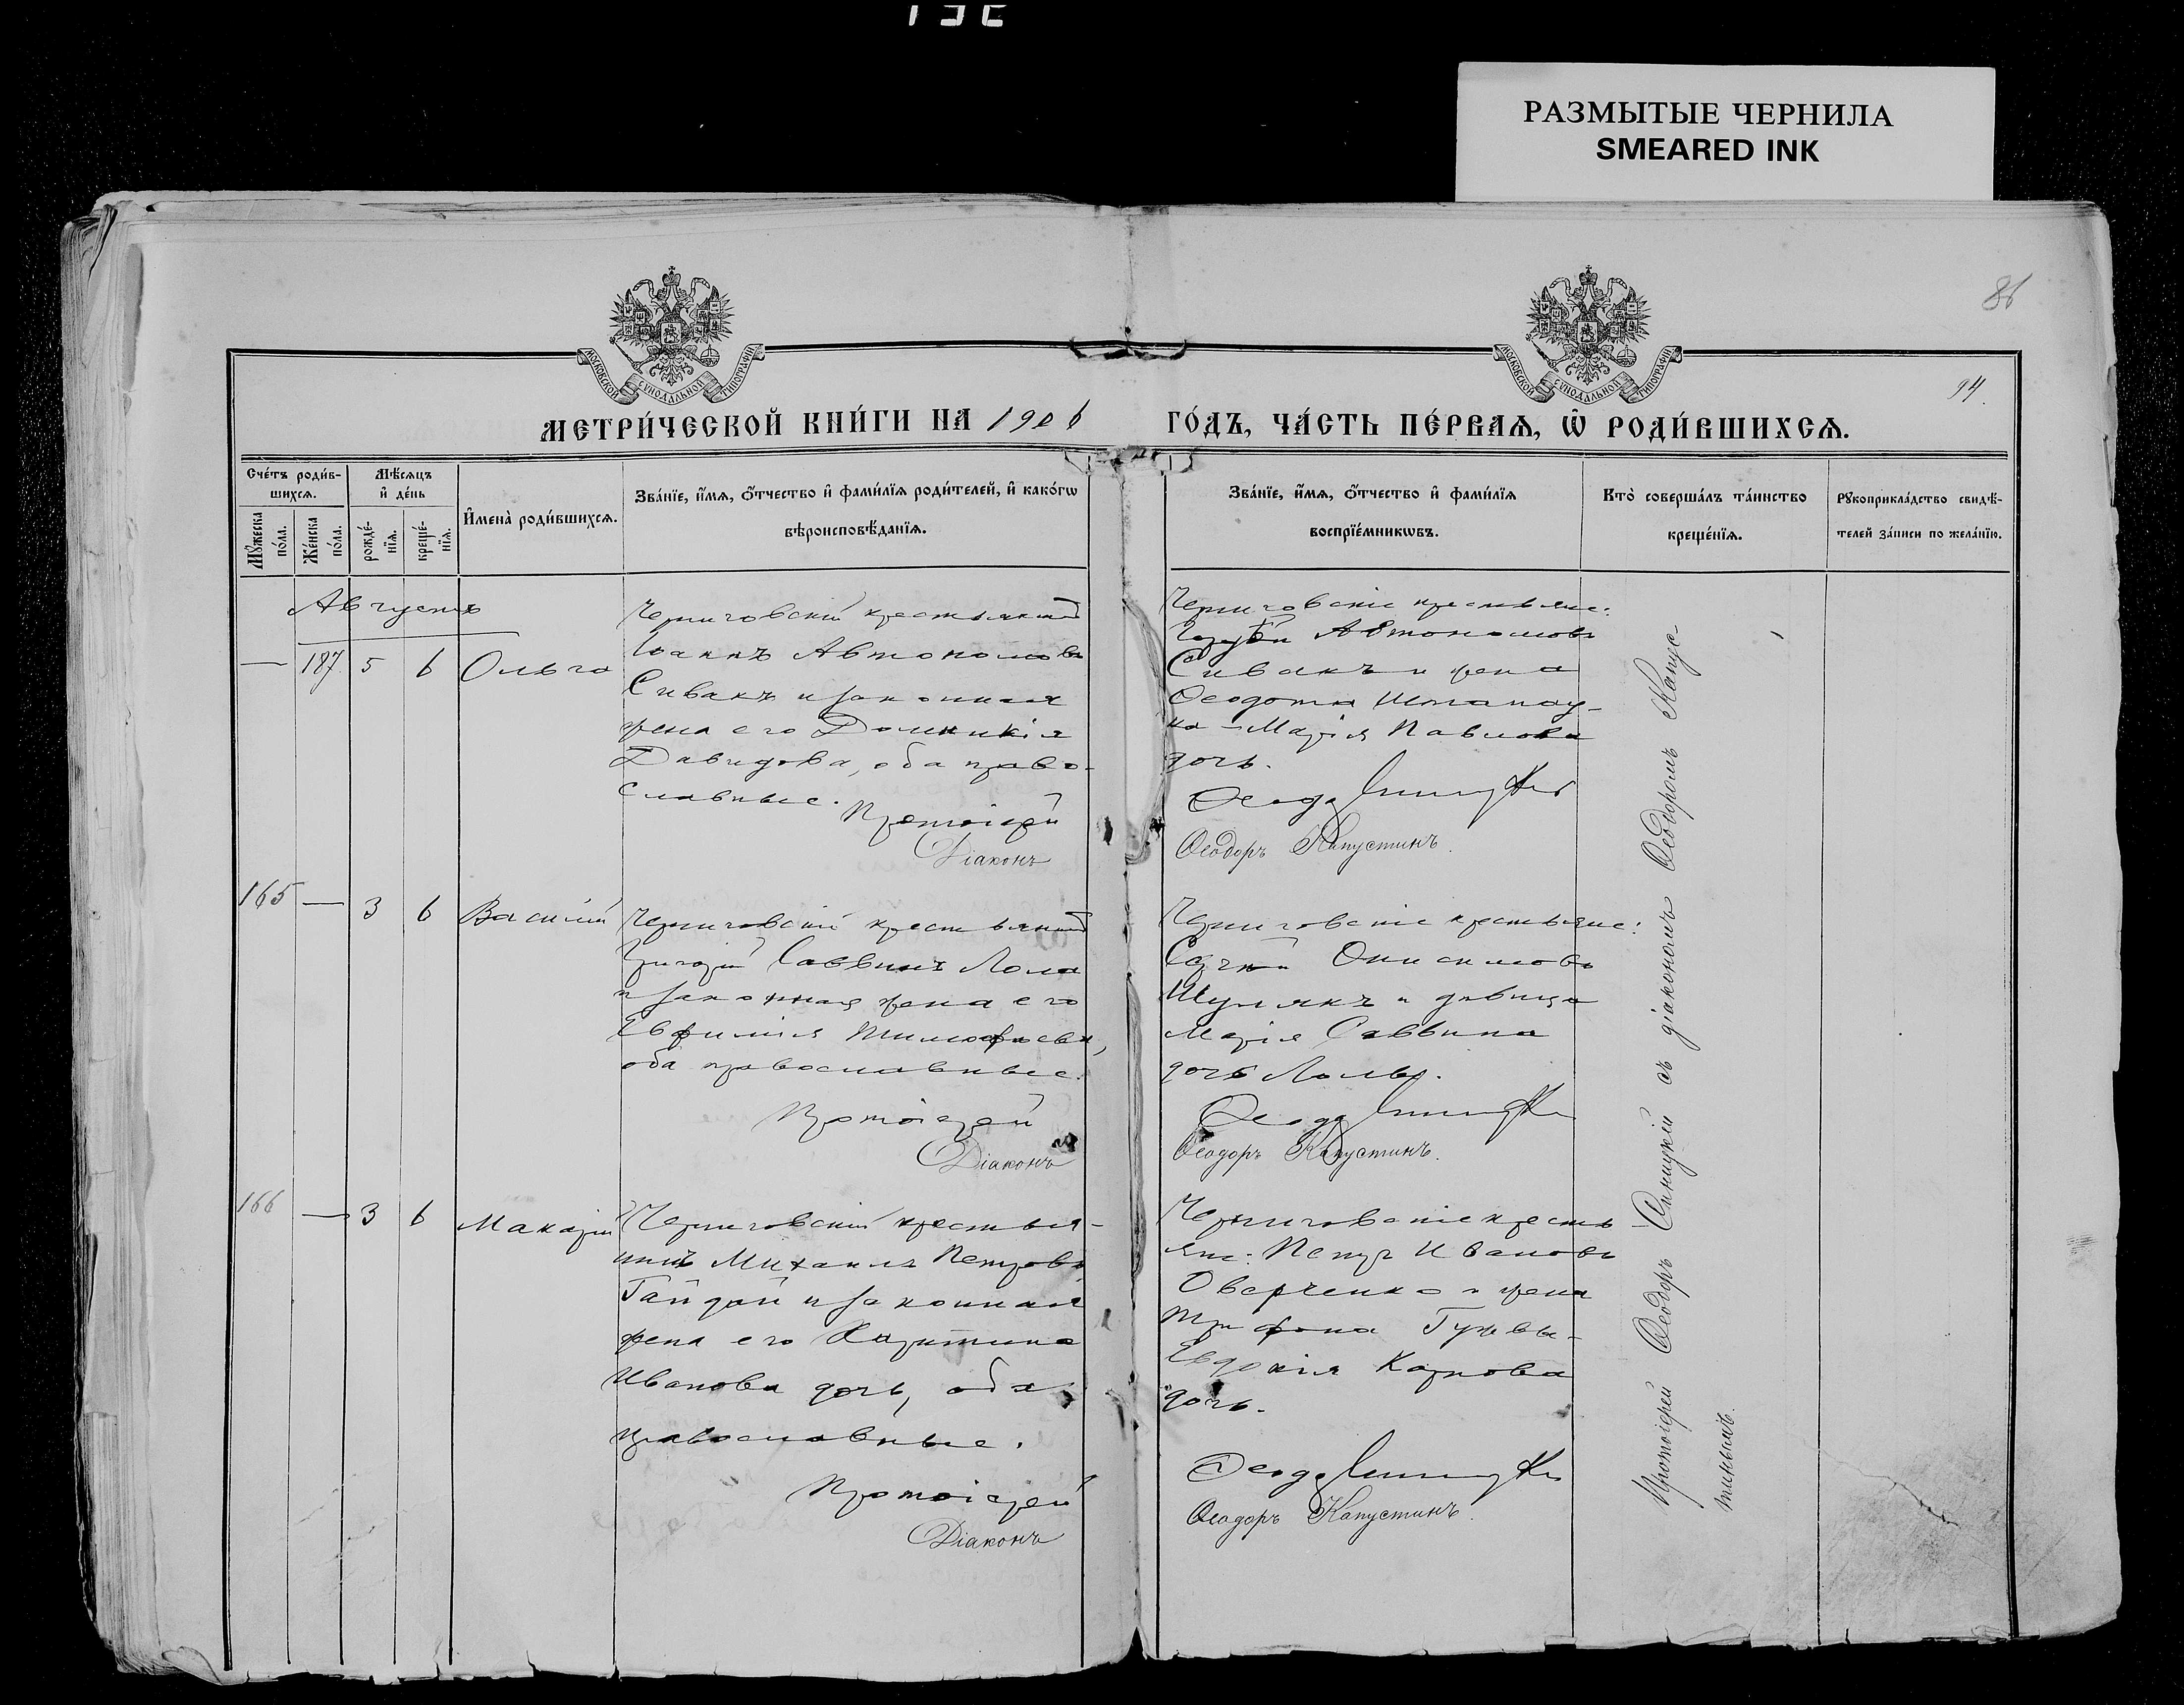 РАЗМЫТЫЕ ЧЕРНИЛА
SMEARED INK
86
94.
МОСКОВСКОЙ СУНОДАЛЬНОЙ ТИПОГРАФІИ
МОСКОВСКОЙ СУНОДАЛЬНОЙ ТИПОГРАФІИ
МЕТРИ́ЧЕСКОЙ КНИ́ГИ НА 1906 ГО́ДЪ, ЧА́СТЬ ПЕ́РВАѦ, Ѡ҆ РОДИ́ВШИХСѦ.
Сче́тъ роди́в-
шихсѧ.
Мꙋ́жеска
по́ла.
Же́нска
по́ла.
Мѣ́сѧцъ
и҆ де́нь
рожде́-
нїѧ.
креще́-
нїѧ.
И҆мена̀ роди́вшихсѧ.
Зва́нїе, и҆́мѧ, ѻ҆́тчество и҆ фами́лїѧ роди́телей, и҆ како́гѡ
вѣроисповѣ́данїѧ.
Зва́нїе, и҆́мѧ, ѻ҆́тчество и҆ фами́лїѧ
воспрїе́мникѡвъ.
Кто̀ соверша́лъ та́инство
креще́нїѧ.
Рꙋкоприкла́дство свидѣ́-
телей за́писи по жела́нїю.
Августъ
— 187 5 6 Ольга
Черниговскій крестьянинъ
Іоаннъ Автономовъ
Сивакъ и законная
жена его Домникія
Давидова, оба право-
славные.
Протоіерей
Діаконъ
Черниговскіе крестьяне:
Автономовъ
Сивакъ и жена
Ѳеодота
Марія Павлова
дочь.
Ѳеодоръ Синицкій
Ѳеодоръ Капустинъ.
165 — 3 6 Василій
Черниговскій крестьянинъ
Григорій Саввинъ Лола
и законная жена его
Евфимія Тимофеева,
оба православные.
Протоіерей
Діаконъ
Черниговскіе крестьяне:
Сергій Онисимовъ
Шулякъ и дѣвица
Марія Саввина
дочь Лолы.
Ѳеодоръ Синицкій
Ѳеодоръ Капустинъ.
166 — 3 6 Макарій
Черниговскій крестья-
нинъ Михаилъ Петровъ
Гайдай и законная
жена его Харитина
Иванова дочь, оба
православные.
Протоіерей
Діаконъ
Черниговскіе кресть
яне: Петръ Ивановъ
Оверченко и жена
Трифона Гужвы-
Евдокія Карпова
дочь.
Ѳеодоръ Синицкій
Ѳеодоръ Капустинъ.
Протоіерей Ѳеодоръ Синицкій съ діакономъ Ѳеодоромъ Капус-
тинымъ.